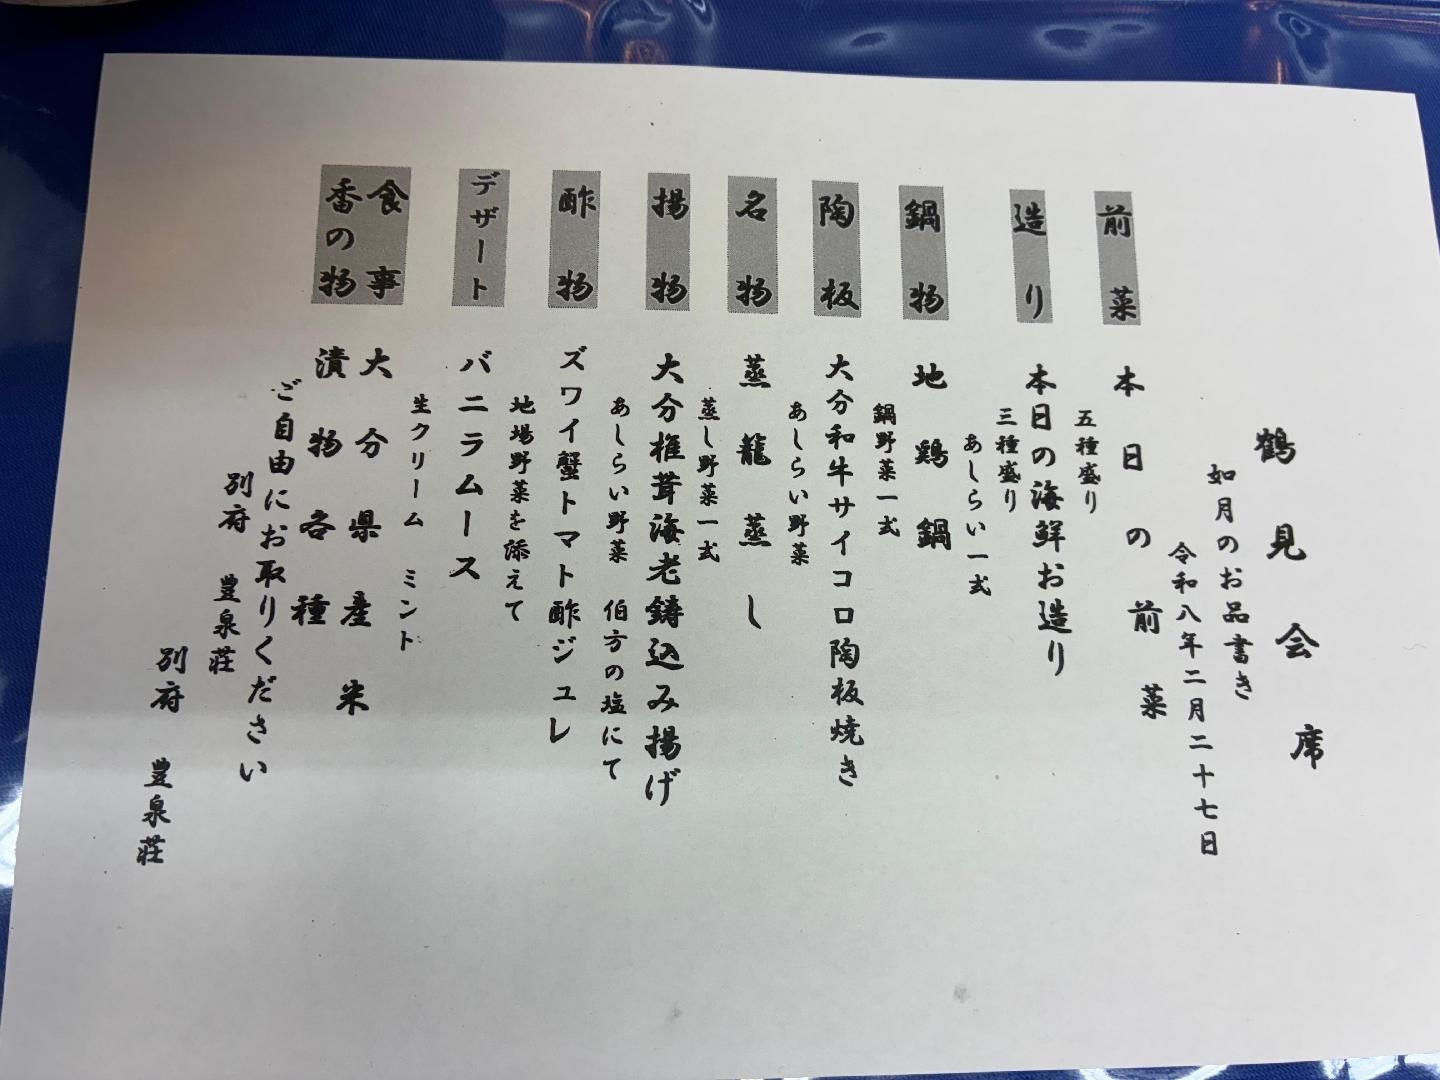 鶴見会席
如月のお品書き
令和八年二月二十七日
前菜 本日の前菜
五種盛り
造り 本日の海鮮お造り
三種盛り
あしらい一式
鍋物 地鶏鍋
鍋野菜一式
陶板 大分和牛サイコロ陶板焼き
あしらい野菜
名物 蒸籠蒸し
蒸し野菜一式
揚物 大分椎茸海老鋳込み揚げ
あしらい野菜 伯方の塩にて
酢物 ズワイ蟹トマト酢ジュレ
地場野菜を添えて
デザート バニラムース
生クリーム ミント
食事 大分県産米
香の物 漬物各種
ご自由にお取りください
別府 豊泉荘
別府 豊泉荘